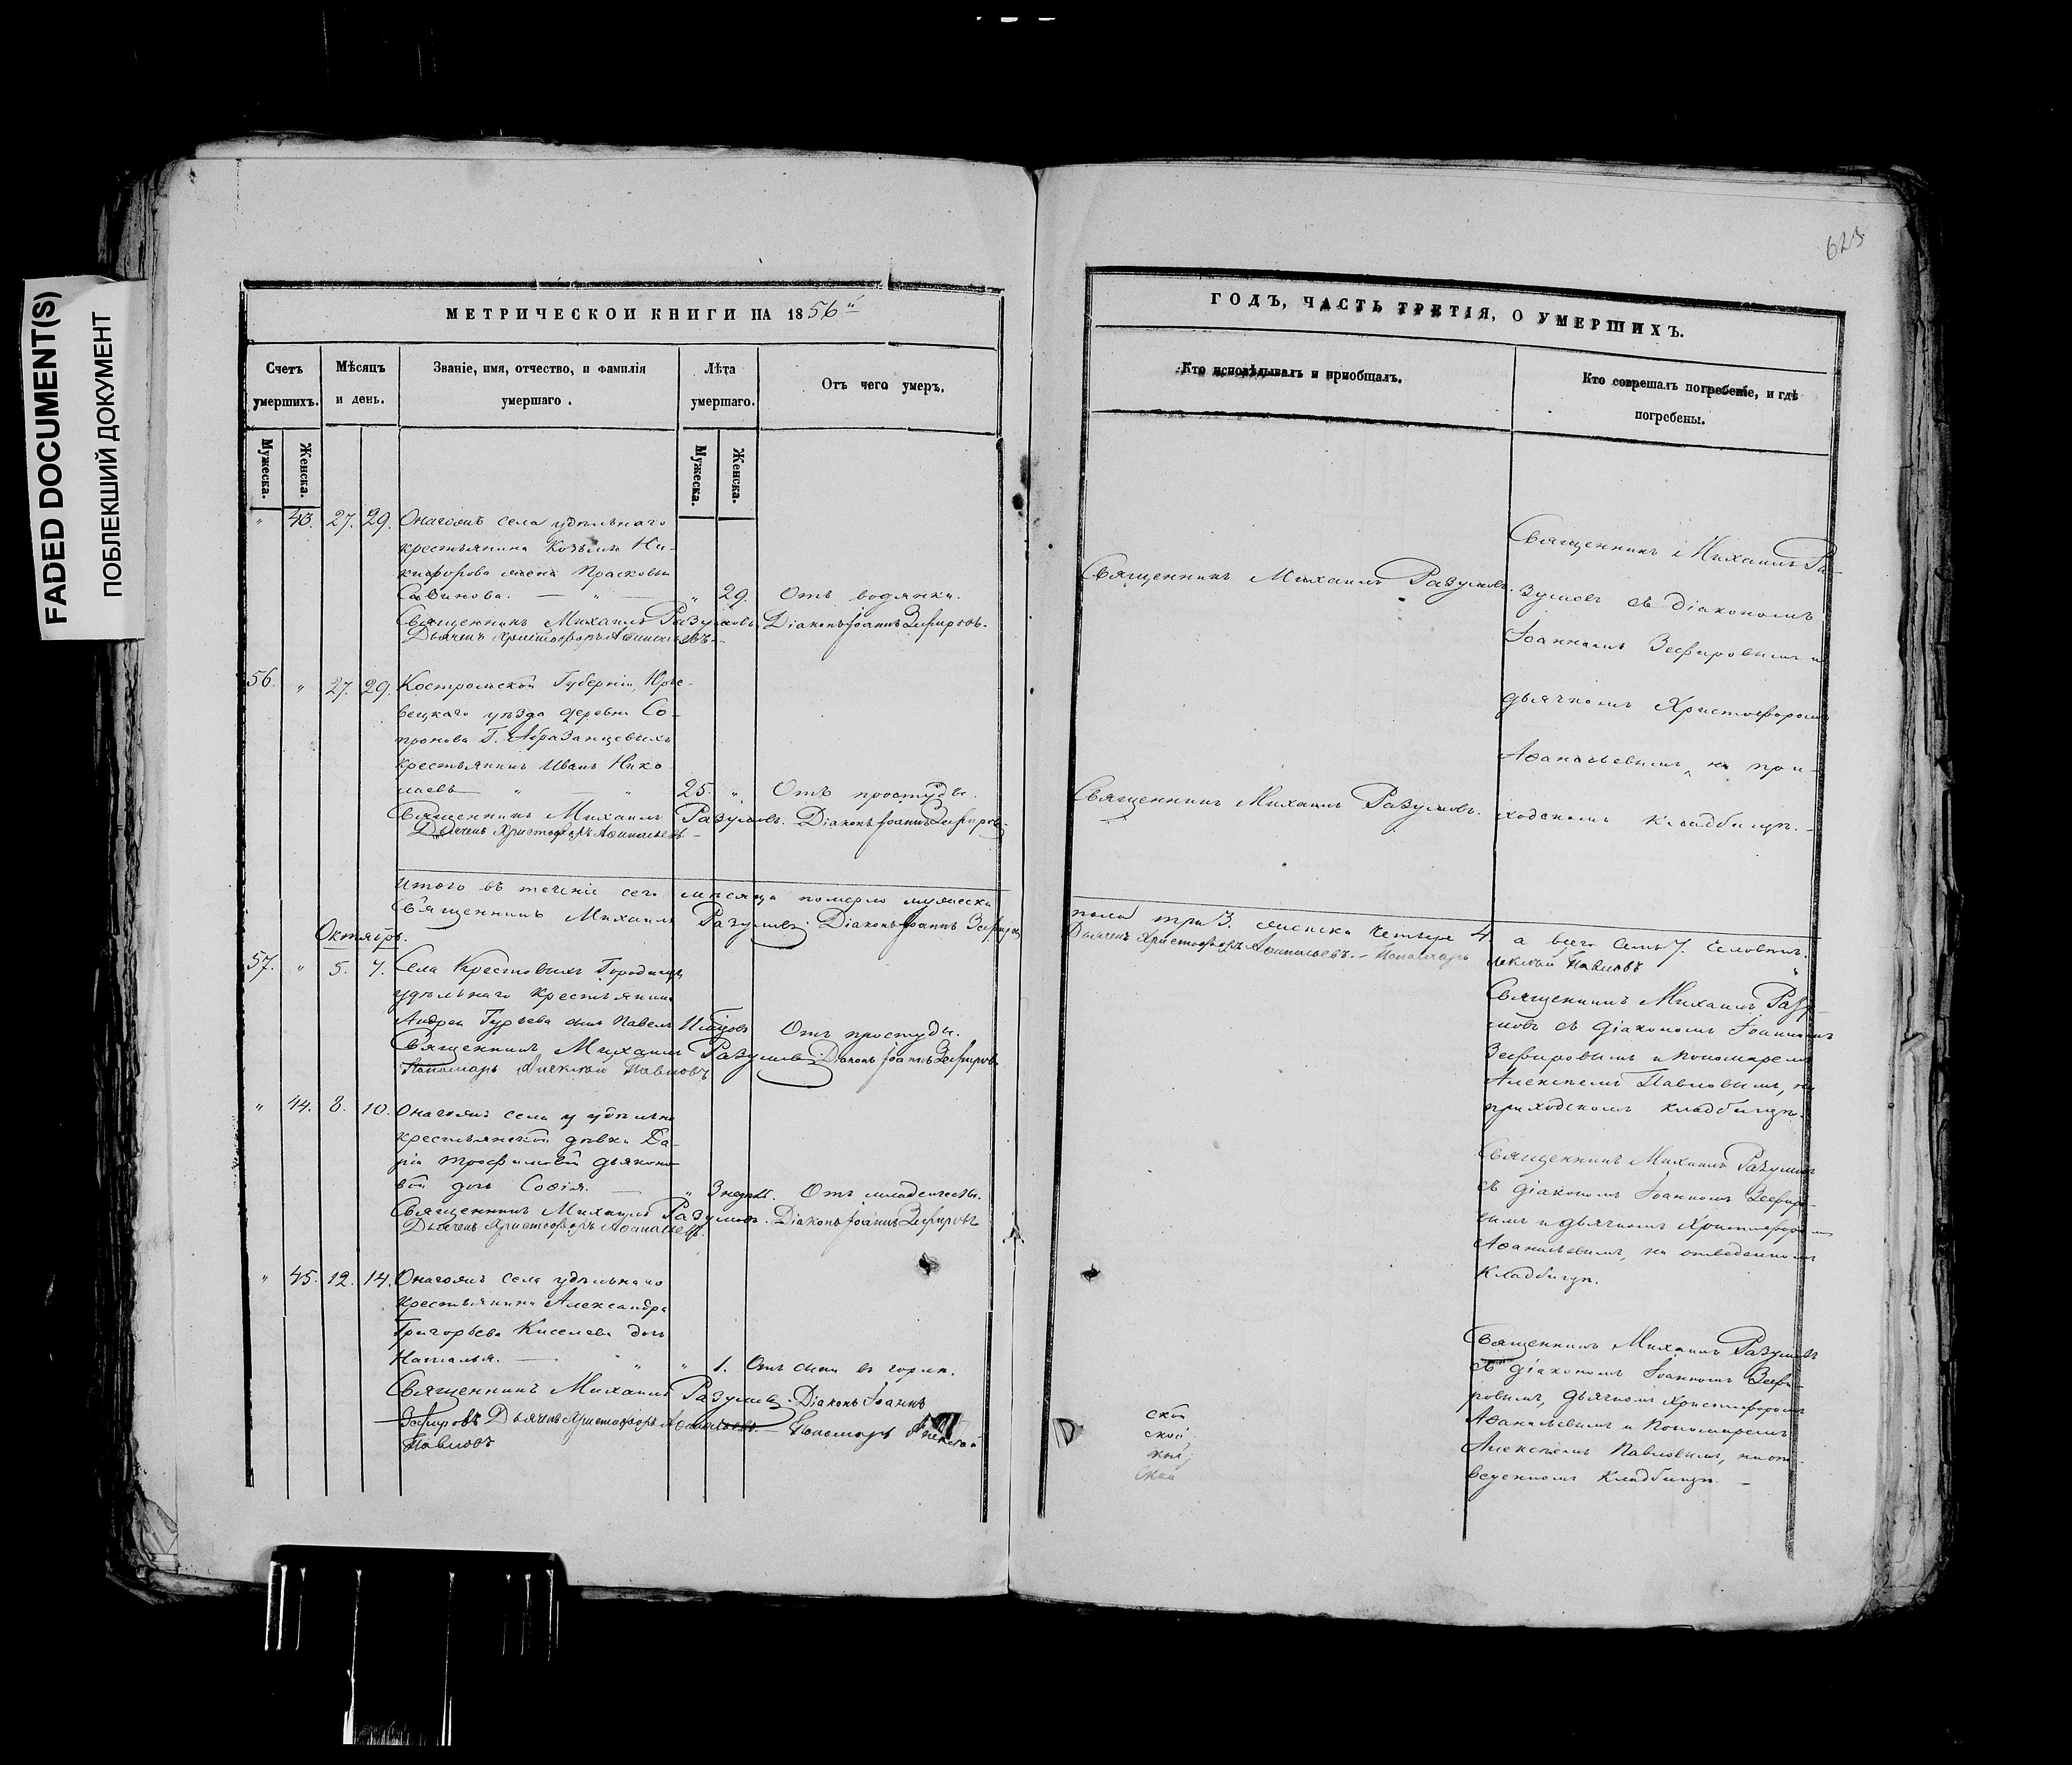 FADED DOCUMENT(S)
ПОБЛЕКШИЙ ДОКУМЕНТ
МЕТРИЧЕСКОЙ КНИГИ НА 1856й
Счетъ умершихъ.
Мѣсяцъ и день.
Званіе, имя, отчество, и фамилія умершаго.
Лѣта умершаго.
Отъ чего умеръ.
Мужеска.
Женска.
Мужеска.
Женска.
" 43. 27. 29. Онагожъ села удѣльнаго
крестьянина Козьмы Ни-
кифорова жена Прасковья
Савинова. — " — " 29. Отъ водянки.
Священникъ Михаилъ Разумовъ. Діаконъ Іоаннъ Зефировъ.
Дьячекъ Христофоръ Аѳанасьевъ.
56. " 27. 29. Костромской Губерніи, Юрье-
вецкаго уѣзда деревни Со-
пронова Г. Абразанцевыхъ
крестьянинъ Иванъ Нико
лаевъ — " — " 25. " Отъ простуды.
Священникъ Михаилъ Разумовъ. Діаконъ Іоаннъ Зефировъ
Дьячекъ Христофоръ Аѳанасьевъ.
Итого въ теченіе сего мѣсяца померло мужеска
Священникъ Михаилъ Разумовъ. Діаконъ Іоаннъ Зефировъ
Октябрь.
57. " 5. 7. Села Крестовыхъ Городищъ
удѣльнаго крестьянина
Андрея Гурьева сынъ Павелъ Отъ простуды.
Священникъ Михаилъ Разумовъ. Діаконъ Іоаннъ Зефировъ
Пономарь Алексѣй Павловъ
" 44. 8. 10. Онагожъ села удѣльно
крестьянской дѣвки Да-
ріи Трофимовой дьяконо
вой дочь Софія. — " 3 недѣл. Отъ младенчества.
Священникъ Михаилъ Разумовъ. Діаконъ Іоаннъ Зефировъ
Дьячекъ Христофоръ Аѳанасьевъ.
" 45. 12. 14. Онагожъ села удѣльнаго
крестьянина Александра
Григорьева Киселева дочь
Наталья. — " " 1. Отъ въ горлѣ.
Священникъ Михаилъ Разумовъ. Діаконъ Іоаннъ
Зефировъ Дьячекъ Христофоръ Аѳанасьевъ. — Пономарь Алексѣй
Павловъ
623
ГОДЪ, ЧАСТЬ ТРЕТІЯ, О УМЕРШИХЪ.
Кто исповѣдывалъ и пріобщалъ.
Кто совершалъ погребеніе, и гдѣ погребены.
Священникъ Михаилъ Разумовъ.
Священникъ Михаилъ Ра-
зумовъ съ діакономъ
Іоанномъ Зефировымъ и
дьячкомъ Христофоромъ
Аѳанасьевымъ, на при-
ходскомъ кладбищѣ. —
Священникъ Михаилъ Разумовъ.
пола три 3. женска четыре 4. а всего семь 7. человѣкъ.
Дьячекъ Христофоръ Аѳанасьевъ. — Пономарь Алексѣй Павловъ
Священникъ Михаилъ Разу-
мовъ съ діакономъ Іоанномъ
Зефировымъ и пономаремъ
Алексѣемъ Павловымъ, на
приходскомъ кладбищѣ.
Священникъ Михаилъ Разумовъ
съ діакономъ Іоанномъ Зефиро-
вымъ и дьячкомъ Христофоромъ
Аѳанасьевымъ, на отведенномъ
кладбищѣ.
Священникъ Михаилъ Разумовъ
съ діакономъ Іоанномъ Зефи-
ровымъ, дьячкомъ Христофоромъ
Аѳанасьевымъ и пономаремъ
Алексѣемъ Павловымъ, на от-
веденномъ кладбищѣ. —
ской
ской